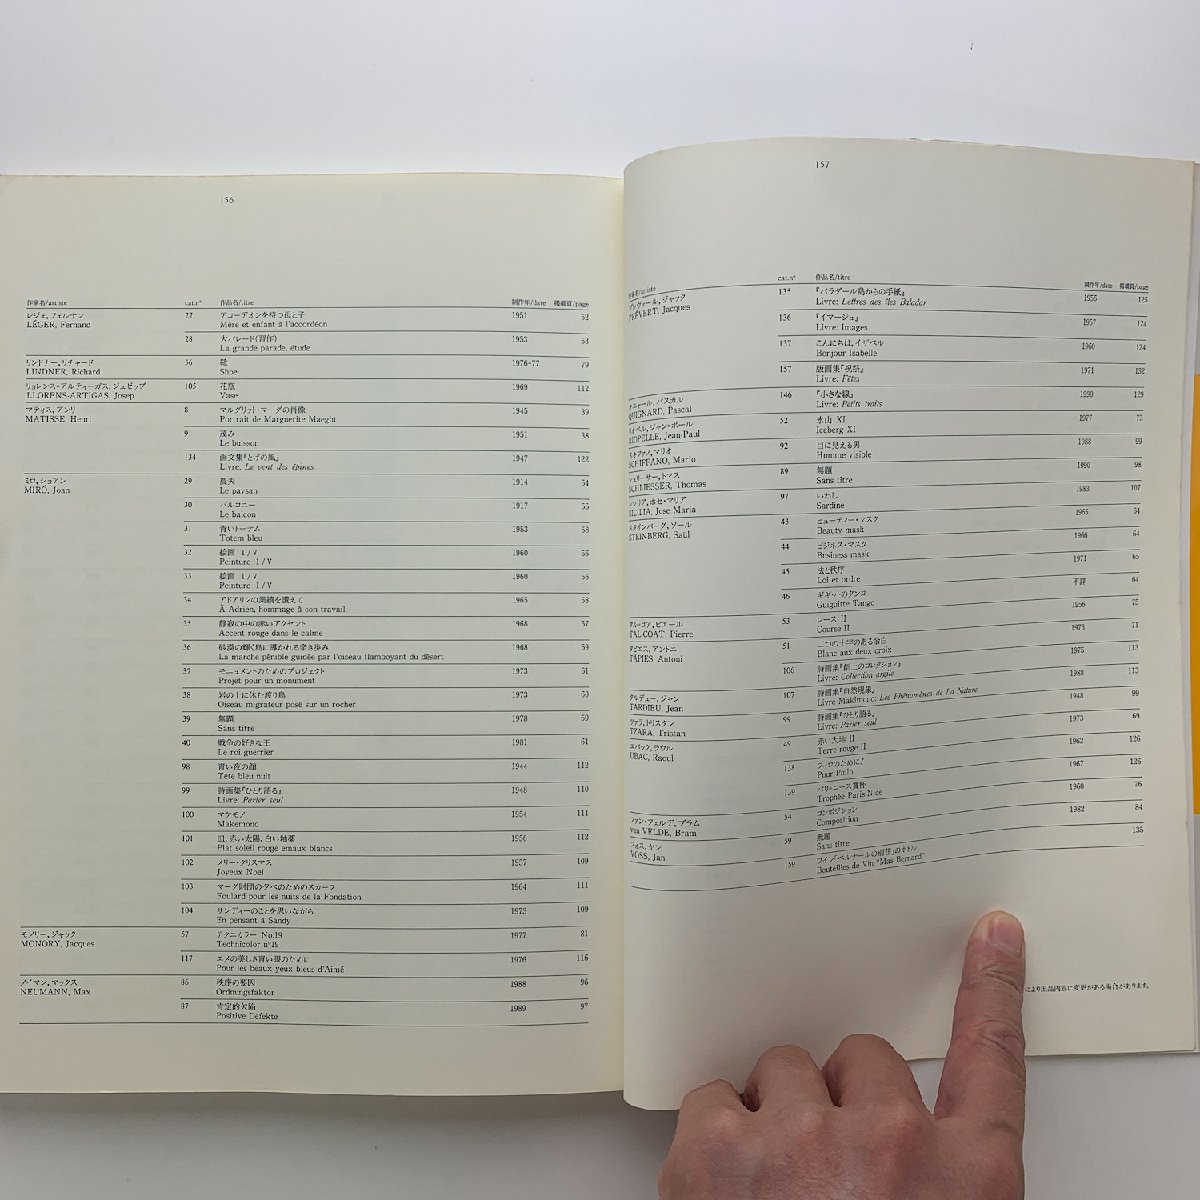 156
作家名/artiste cat.n° 作品名/titre 制作年/date 掲載頁/page
レジェ, フェルナン 27 アコーデオンを持つ母と子 1951 52
LÉGER, Fernand Mère et enfant à l'accordéon
28 大パレード(習作) 1953 53
La grande parade, étude
リンドナー, リチャード 56 靴 1976-77 79
LINDNER, Richard Shoe
リョレンス=アルティーガス, ジュゼップ 105 花瓶 1969 112
LLORENS-ARTIGAS, Josep Vase
マティス, アンリ 8 マルグリット・マーグの肖像 1945 39
MATISSE, Henri Portrait de Marguerite Maeght
9 茂み 1951 38
Le buisson
134 曲文集『とげの風』 1947 122
Livre: Le vent des épines
ミロ, ジョアン 29 農夫 1914 54
MIRÓ, Joan Le paysan
30 バルコニー 1917 55
Le balcon
31 青いトーテム 1952 58
Totem bleu
32 絵画 I/V 1960 56
Peinture I/V
33 絵画 I/V 1960 56
Peinture I/V
34 アドリアンの業績を讃えて 1965 58
À Adrien, hommage à son travail
35 静寂の中の赤いアクセント 1968 57
Accent rouge dans le calme
36 砂漠の輝く鳥に導かれる辛き歩み 1968 59
La marche pénible guidée par l'oiseau flamboyant du désert
37 モニュメントのためのプロジェクト 1973 61
Projet pour un monument
38 岩の上に休む渡り鳥 1973 60
Oiseau migrateur posé sur un rocher
39 無題 1978 50
Sans titre
40 戦争の好きな王 1981 61
Le roi guerrier
98 青い夜の顔 1944 112
Tête bleu nuit
99 詩画集『ひとり語る』 1948 110
Livre: Parler seul
100 マケモノ 1954 111
Makemono
101 皿, 赤い太陽, 白い釉薬 1956 112
Plat soleil rouge émaux blancs
102 メリー・クリスマス 1957 109
Joyeux Noël
103 マーグ財団の夕べのためのスカーフ 1964 111
Foulard pour les nuits de la Fondation
104 サンディーのことを思いながら 1973 109
En pensant à Sandy
モノリー, ジャック 57 テクニカラー No.19 1977 81
MONORY, Jacques Technicolor n°19
117 エメの美しき青い眼のために 1976 116
Pour les beaux yeux bleus d'Aimé
ノイマン, マックス 86 秩序の要因 1988 96
NEUMANN, Max Ordnungsfaktor
87 肯定的欠陥 1989 97
Positive Defekte
157
cat.n° 作品名/titre 制作年/date 掲載頁/page
プレヴェール, ジャック 135 『バラダール島からの手紙』 1955 125
PRÉVERT, Jacques Livre: Lettres des îles Baladar
136 『イマージュ』 1957 124
Livre: Images
137 こんにちは, イザベル 1960 124
Bonjour Isabelle
157 版画集『祝祭』 1971 132
Livre: Fêtes
キニャール, パスカル 146 『小さな線』 1990 129
QUIGNARD, Pascal Livre: Petits traits
リオペル, ジャン=ポール 52 氷山 XI 1977 73
RIOPELLE, Jean-Paul Iceberg XI
スキファノ, マリオ 92 目に見える男 1988 99
SCHIFANO, Mario Homme visible
シュリーサー, トマス 89 無題 1990 98
SCHLIESSER, Thomas Sans titre
シシリア, ホセ・マリア 97 いわし 1983 107
SICILIA, Jose Maria Sardine
スタインバーグ, ソール 43 ビューティー・マスク 1965 64
STEINBERG, Saul Beauty mask
44 ビジネス・マスク 1968 64
Business mask
45 法と秩序 1971 65
Loi et ordre
46 ギギット・タンゴ 不詳 64
Guiguitte Tango
タル=コアト, ピエール 53 レース II 1956 75
TAL-COAT, Pierre Course II
タピエス, アントニ 51 二つの十字のある余白 1973 71
TÀPIES, Antoni Blanc aux deux croix
106 1975 113
タルデュー, ジャン 107 詩画集『自然現象』 1988 113
TARDIEU, Jean
ツァラ, トリスタン 99 詩画集『ひとり語る』 1948 99
TZARA, Tristan Livre: Parler seul
ユバック, ラウル 49 赤い大地 II 1973 69
UBAC, Raoul Terre rouge II
138 1962 126
139 パリ=ニース賞杯 1967 126
Trophée Paris-Nice
ヴァン・フェルデ, ブラム 54 コンポジション 1960 76
van VELDE, Bram Composition
フォス, ヤン 59 無題 1982 84
VOSS, Jan Sans titre
159 135
Bouteilles de Vin "Mas Bernard"
により出品内容に変更がある場合があります。